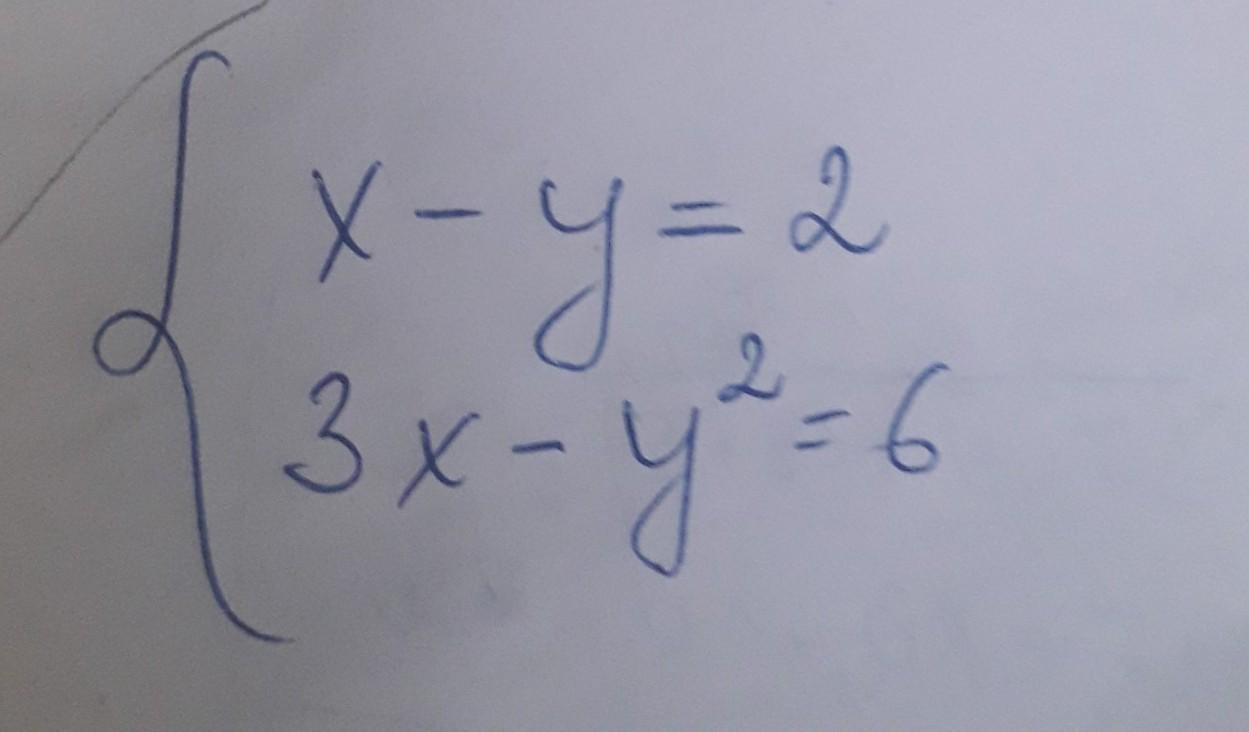 x - y = 2
3x - y² = 6